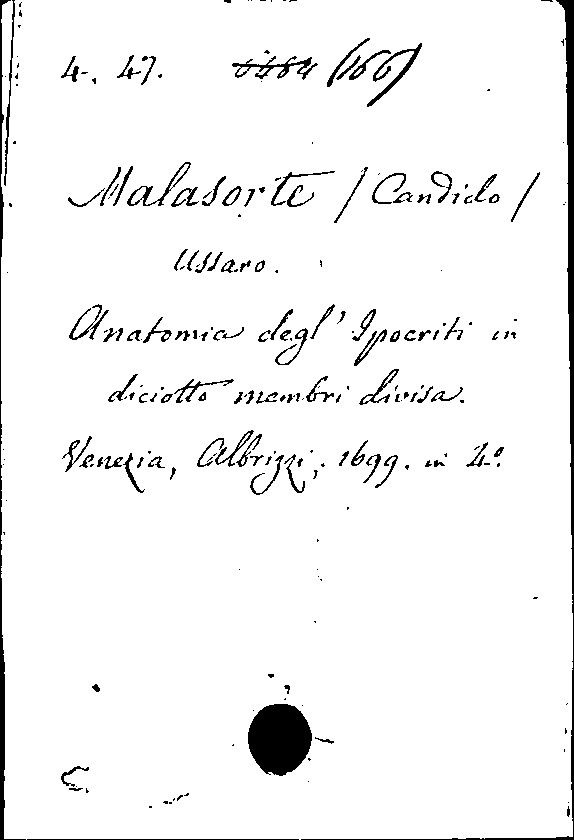 4. 47. (166)
Malasorte / Candido /
Ussaro.
Anatomia degl' Ipocriti in
diciotto membri divisa.
Venezia, Albrizzi, 1699. in 4.º